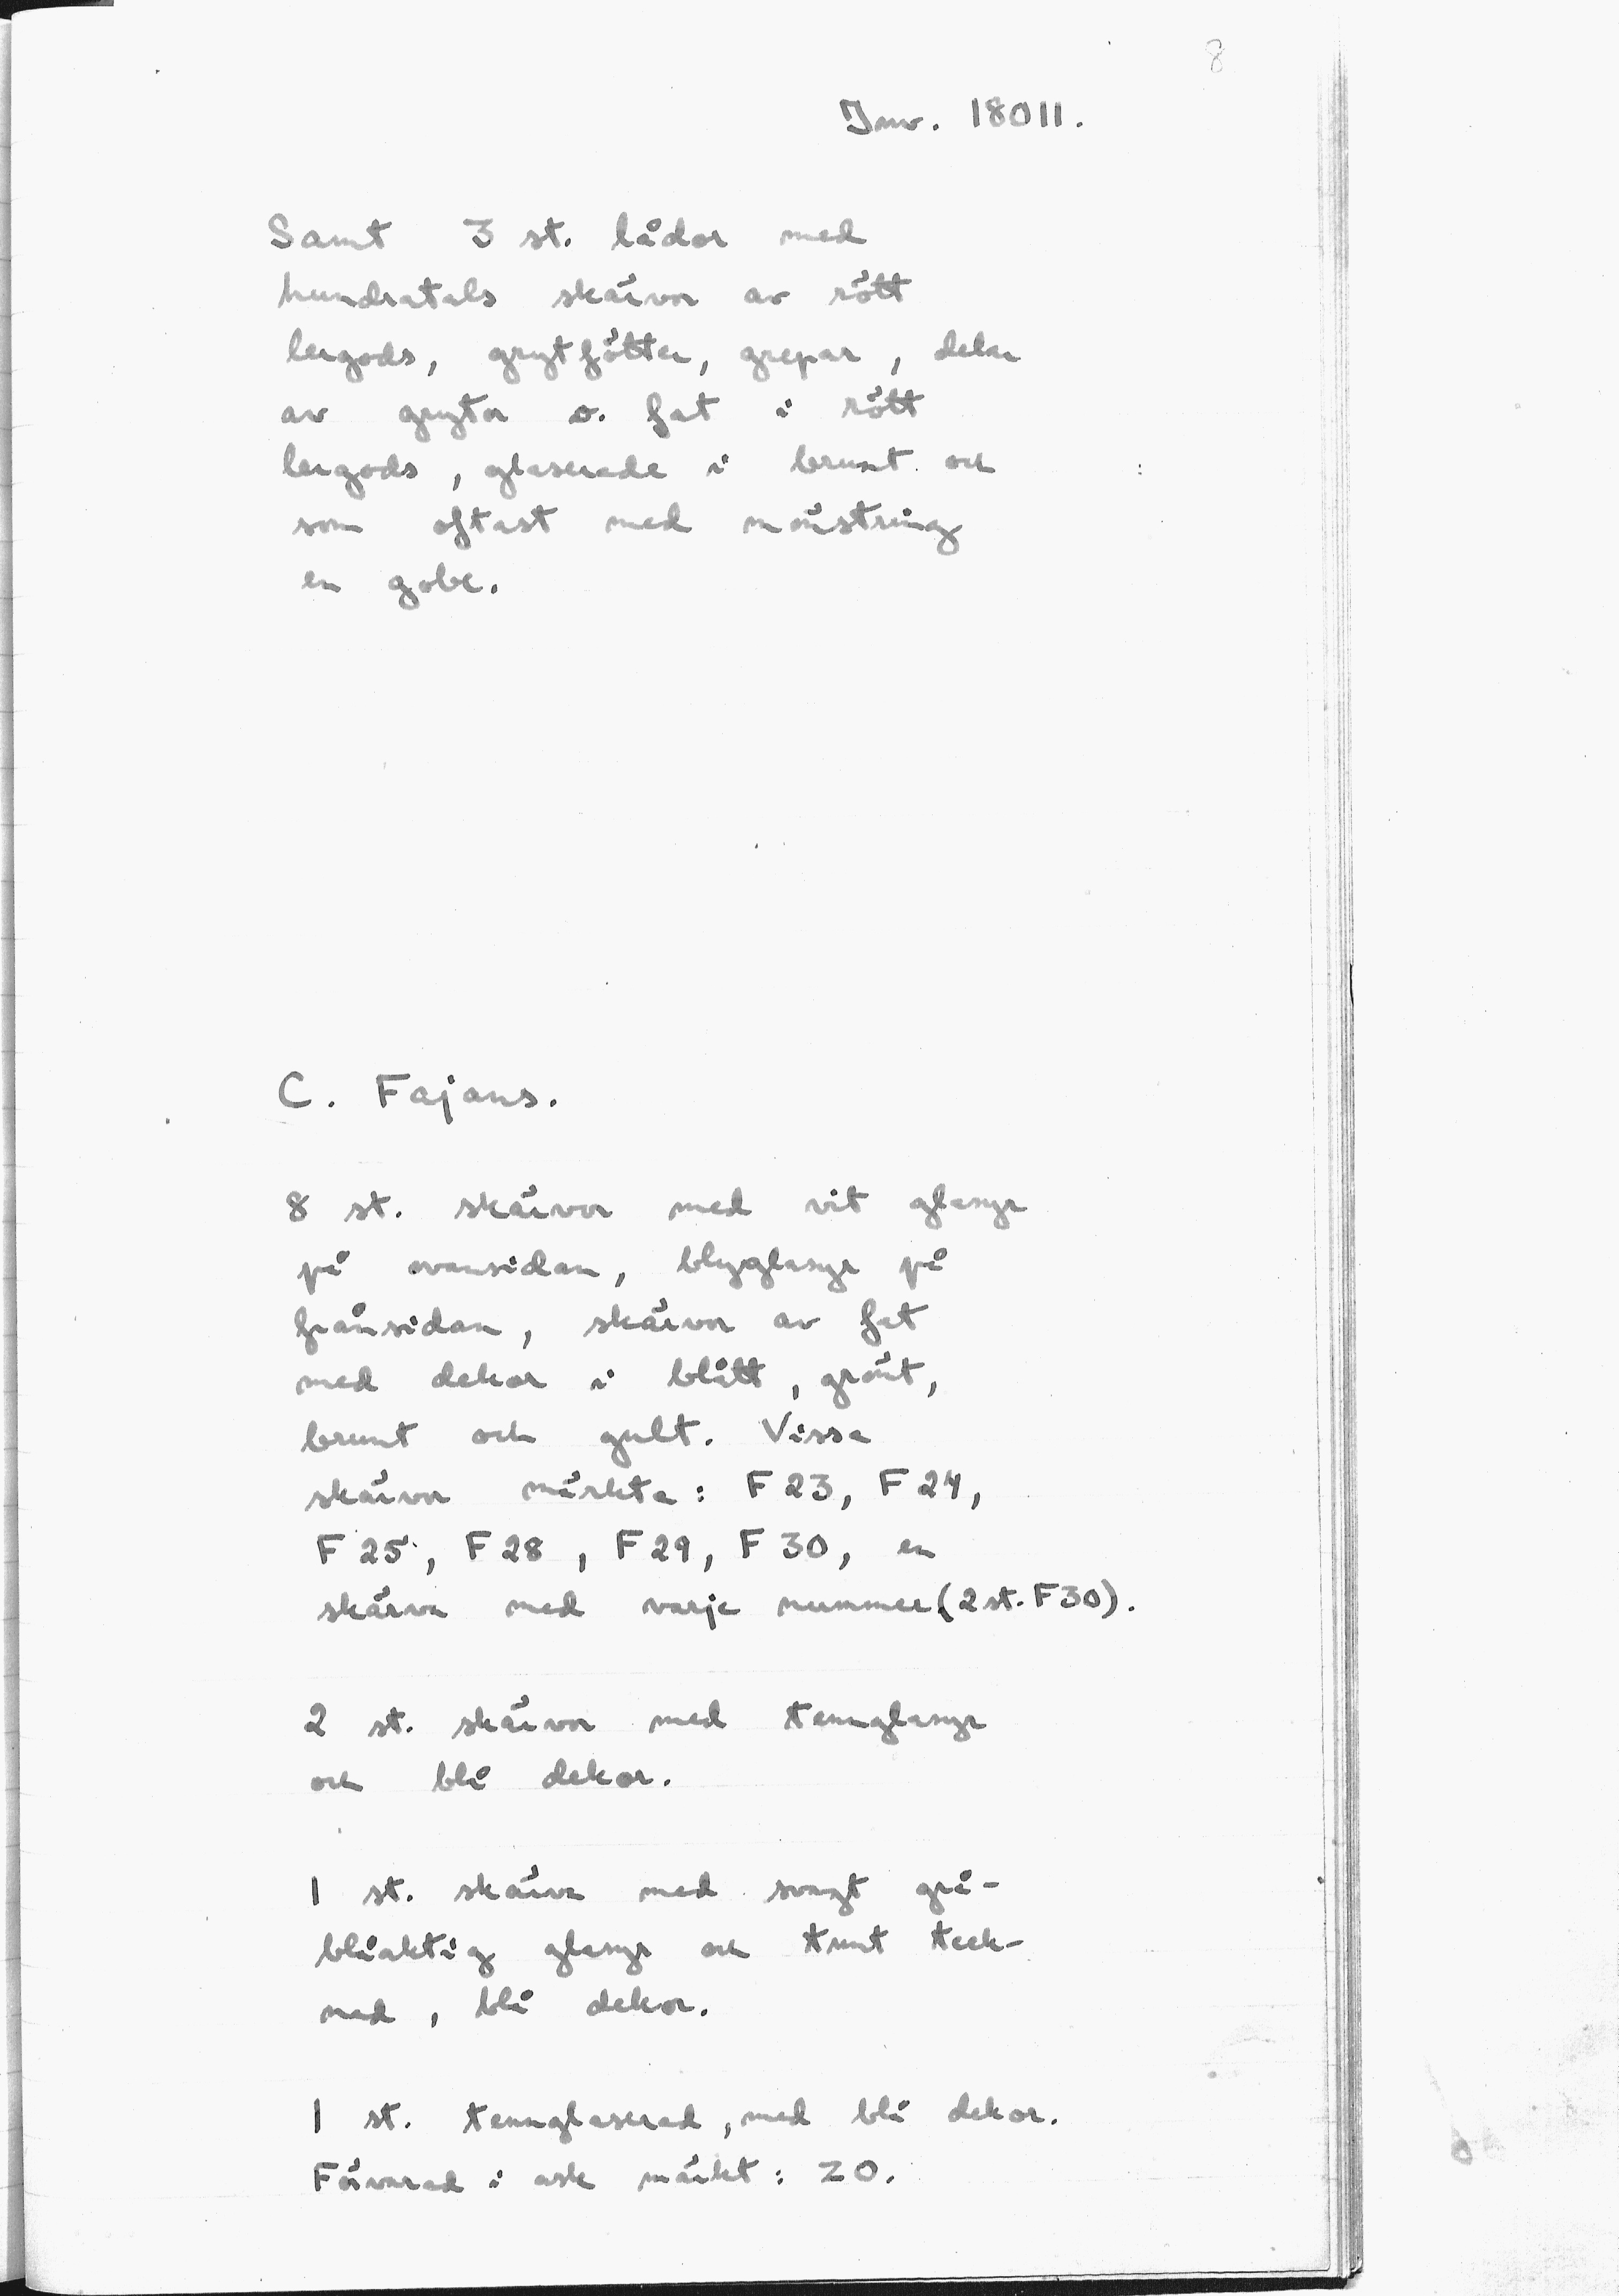 8
Inv. 18011.
Samt 3 st. lådor med
hundratals skärvor av rött
lergods, grytfötter, grepar, delar
av grytor o. fat i rött
lergods, glaserade i brunt och
som oftast med mönstring
en gobe.
C. Fajans.
8 st. skärvor med vit glasyr
på ovansidan, blyglasyr på
frånsidan, skärvor av fat
med dekor i blått, grönt,
brunt och gult. Vissa
skärvor märkta: F 23, F 24,
F 25, F 28, F 29, F 30, en
skärva med varje nummer (2 st. F30).
2 st. skärvor med tennglasyr
och blå dekor.
1 st. skärva med svagt grå-
blåaktig glasyr och tunt teck-
nad, blå dekor.
1 st. tennglaserad, med blå dekor.
Förvarad i ask märkt: ZO.